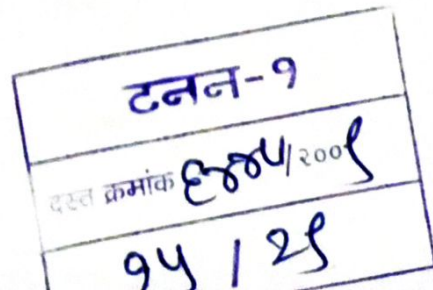 टनन-१
दस्त क्रमांक ६४४५/२००९
१५ / २९